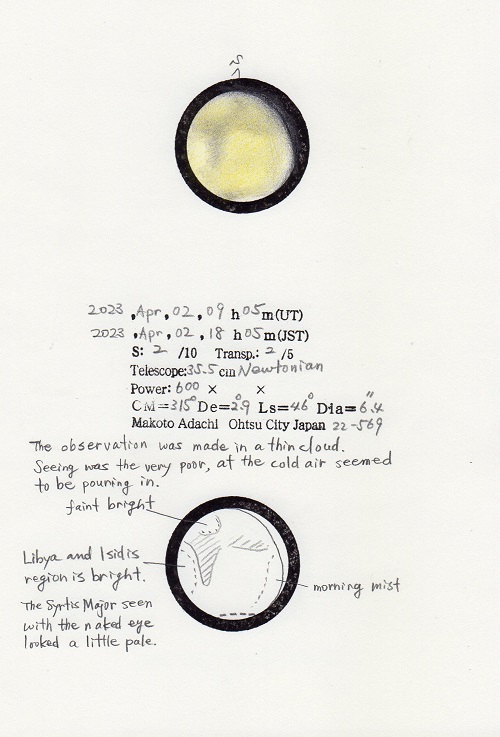 S
2023 ,Apr, 02, 09 h 05 m(UT)
2023 ,Apr, 02, 18 h 05 m(JST)
S: 2 /10 Transp.: 2 /5
Telescope:35.5 cm Newtonian
Power: 600 × ×
CM=315° De=2.°9 Ls=46° Dia=6."4
Makoto Adachi Ohtsu City Japan 22-569
The observation was made in a thin cloud.
Seeing was the very poor, at the cold air seemed
to be pouring in.
faint bright
Libya and Isidis
region is bright.
morning mist
The Syrtis Major seen
with the naked eye
looked a little pale.